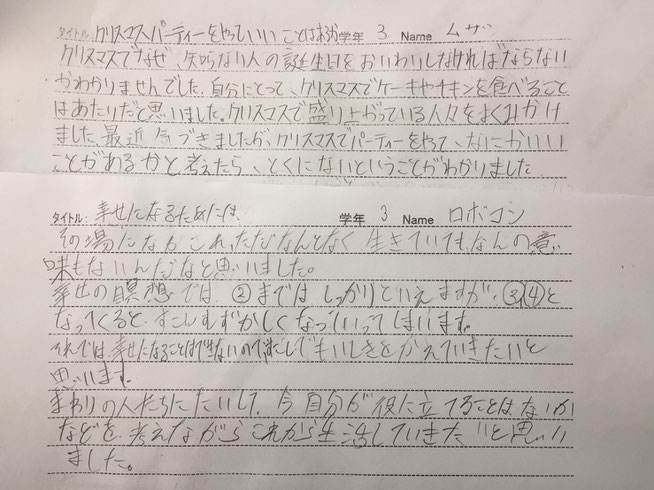 タイトル:クリスマスパーティーをやっていいことはあるか 学年 3 Name ムサシ
クリスマスでなぜ、知らない人の誕生日をおいわいしなければならない
かわかりませんでした。自分にとって、クリスマスでケーキやチキンを食べること
はあたりだと思いました。クリスマスで盛り上がっている人々をよくみかけ
ました、最近気づきましたが、クリスマスでパーティーをやって、なにかいい
ことがあるかと考えたら、とくにないということがわかりました
タイトル:幸せになるためには、 学年 3 Name ロボコン
その場にながされ、ただなんとなく生きていても、なんの意
味もないんだなと思いました。
幸せの瞑想では、②まではしっかりといえますが、③,④と
なってくると、すこしむずかしくなっていってしまいます。
それでは、幸せになることはできないので、すこしでもいしきをかえていきたいと
思います。
まわりの人たちにたいして、今自分が役に立てることは、ないか
などを、考えながらこれから生活していきたいと思い
ました。